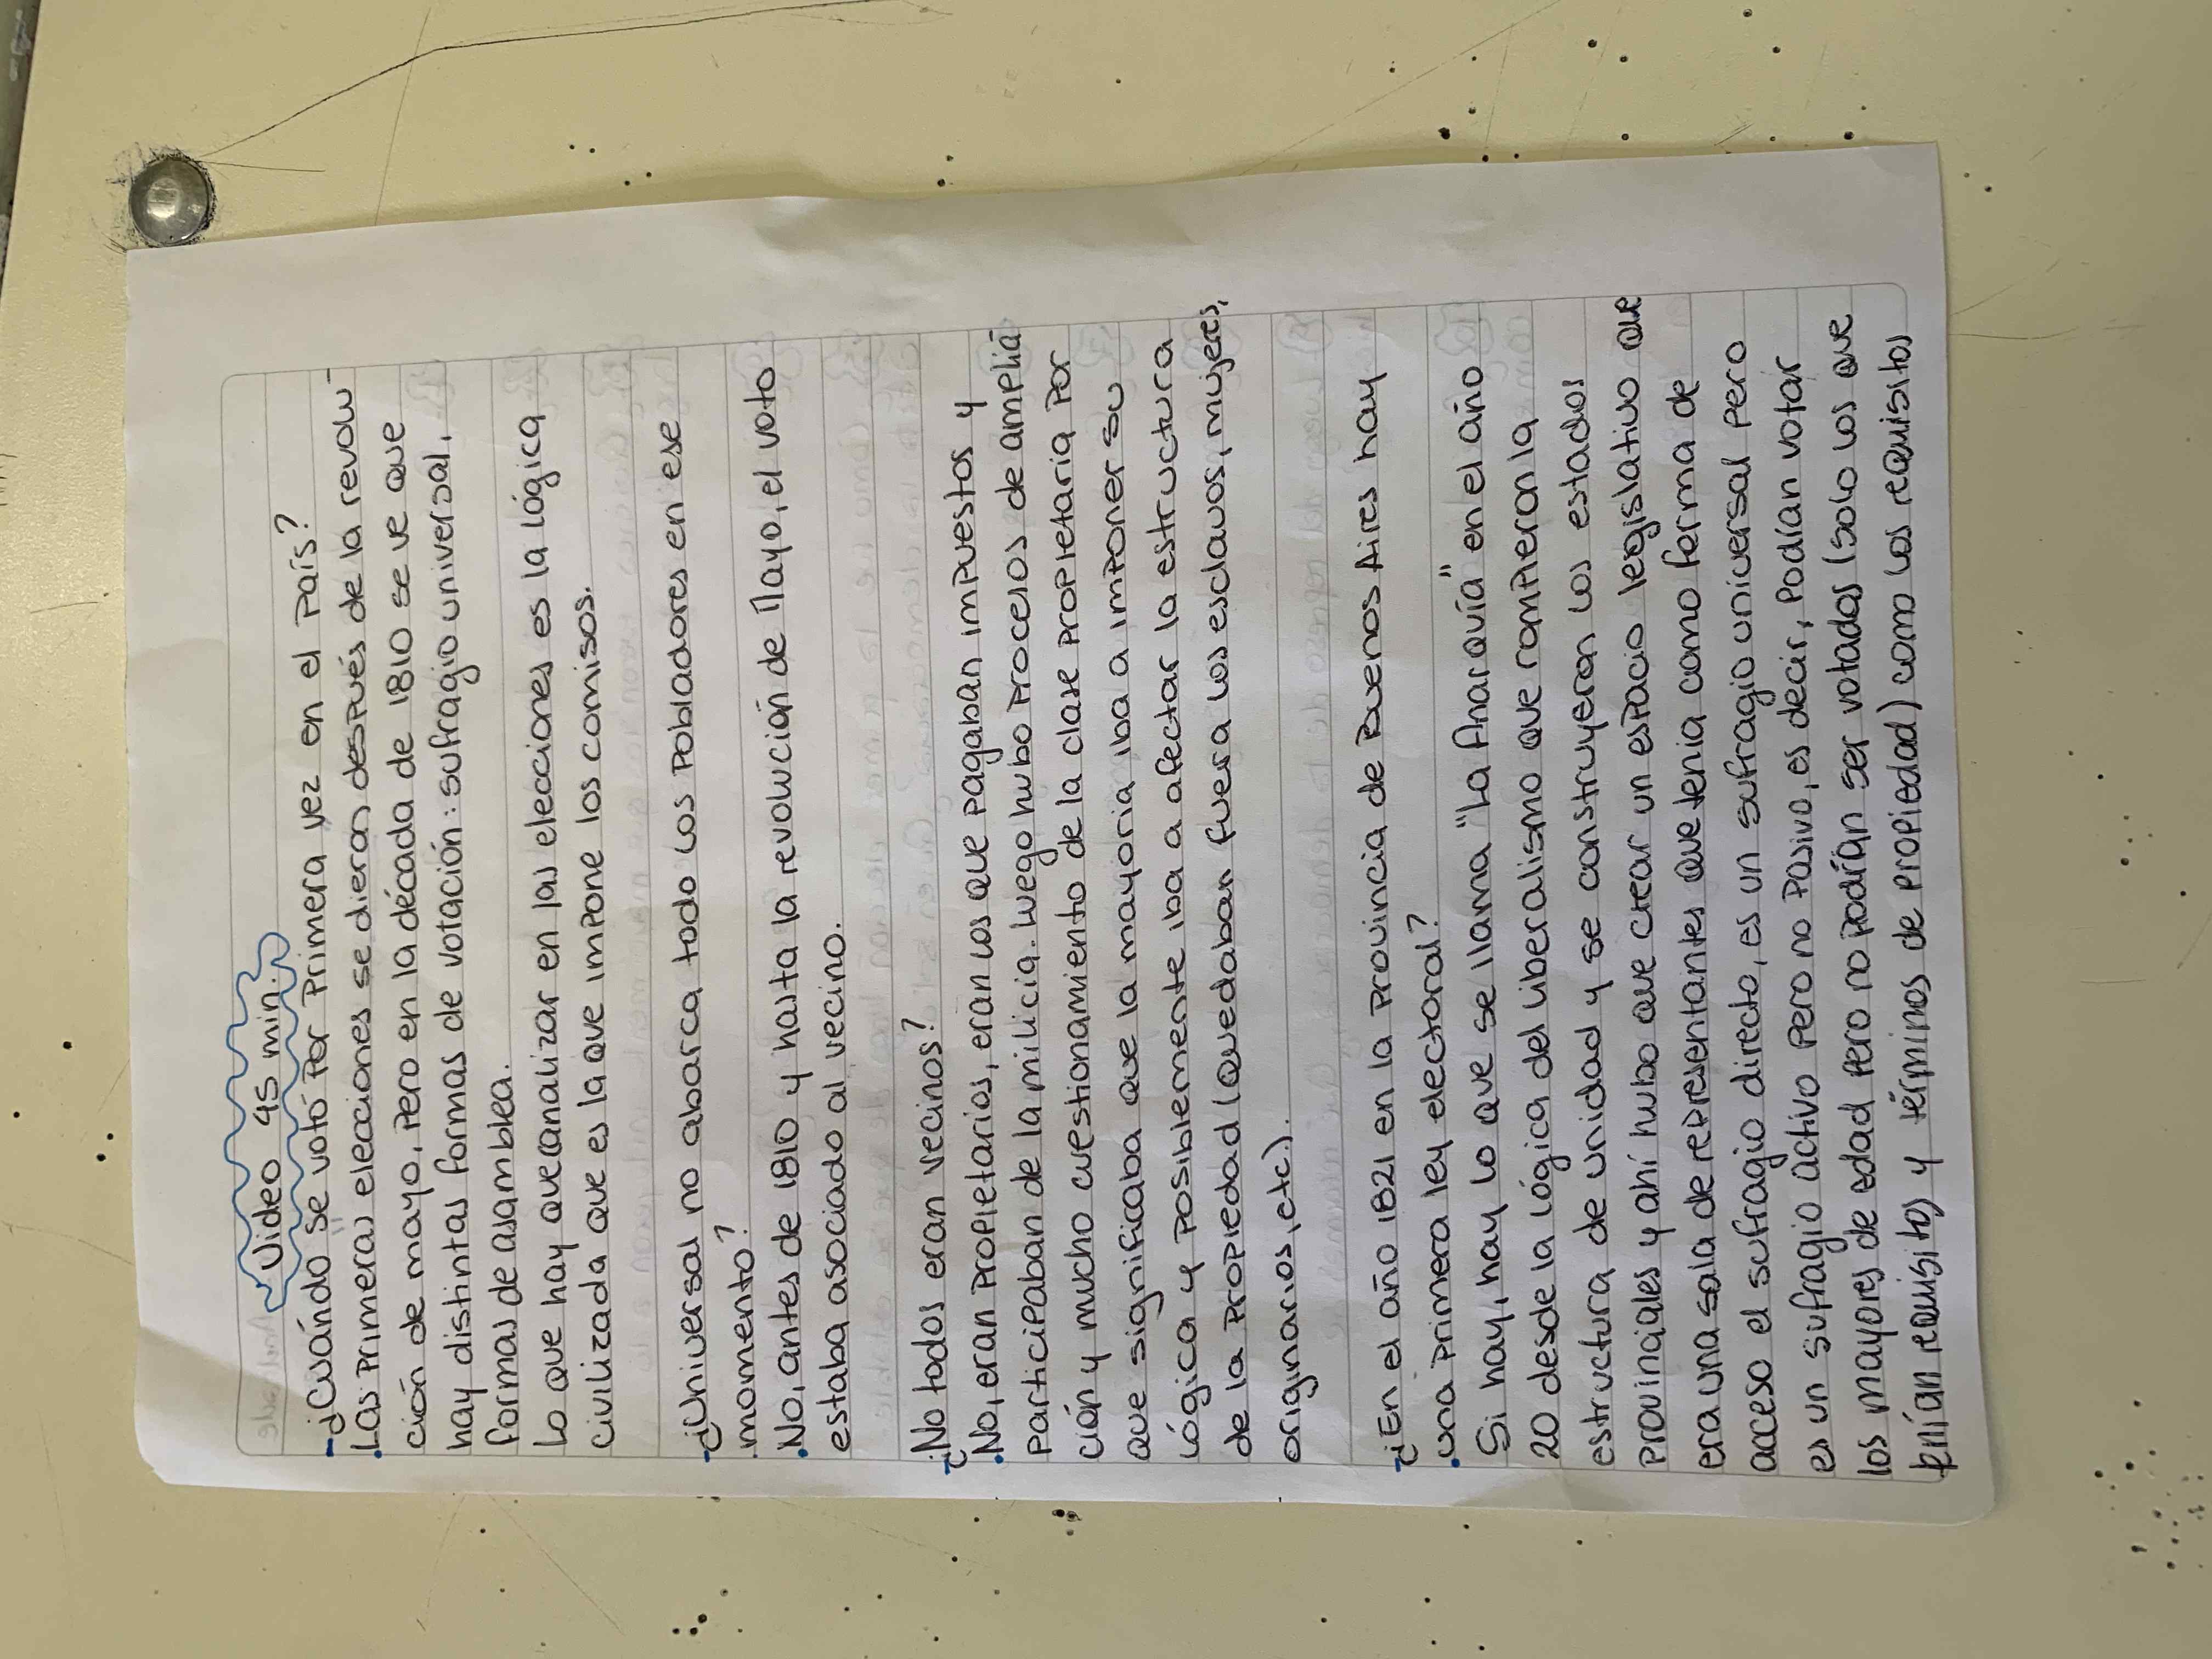 Video 45 min.
- ¿Cuándo se votó por primera vez en el país?
• Las primeras elecciones se dieron después de la revolu-
ción de mayo, pero en la década de 1810 se ve que
hay distintas formas de votación: sufragio universal,
formas de asamblea.
Lo que hay que analizar en las elecciones es la lógica
civilizada que es la que impone los comisos.
- ¿Universal no abarca todo los pobladores en ese
momento?
• No, antes de 1810 y hasta la revolución de Mayo, el voto
estaba asociado al vecino.
- ¿No todos eran vecinos?
• No, eran propietarios, eran los que pagaban impuestos y
participaban de la milicia. Luego hubo procesos de amplia-
ción y mucho cuestionamiento de la clase propietaria por
que significaba que la mayoria iba a imponer su
lógica y posiblemente iba a afectar la estructura
de la propiedad (quedaban fuera los esclavos, mujeres,
originarios, etc).
- ¿En el año 1821 en la provincia de Buenos Aires hay
una primera ley electoral?
• Si hay, hay lo que se llama "La Anarquía" en el año
20 desde la lógica del liberalismo que rompieron la
estructura de unidad y se construyeron los estados
provinciales y ahí hubo que crear un espacio legislativo que
era una sala de representantes que tenia como forma de
acceso el sufragio directo, es un sufragio universal pero
es un sufragio activo pero no pasivo, es decir, podían votar
los mayores de edad pero no podían ser votados (solo los que
tenían requisitos y términos de propiedad) como los requisitos